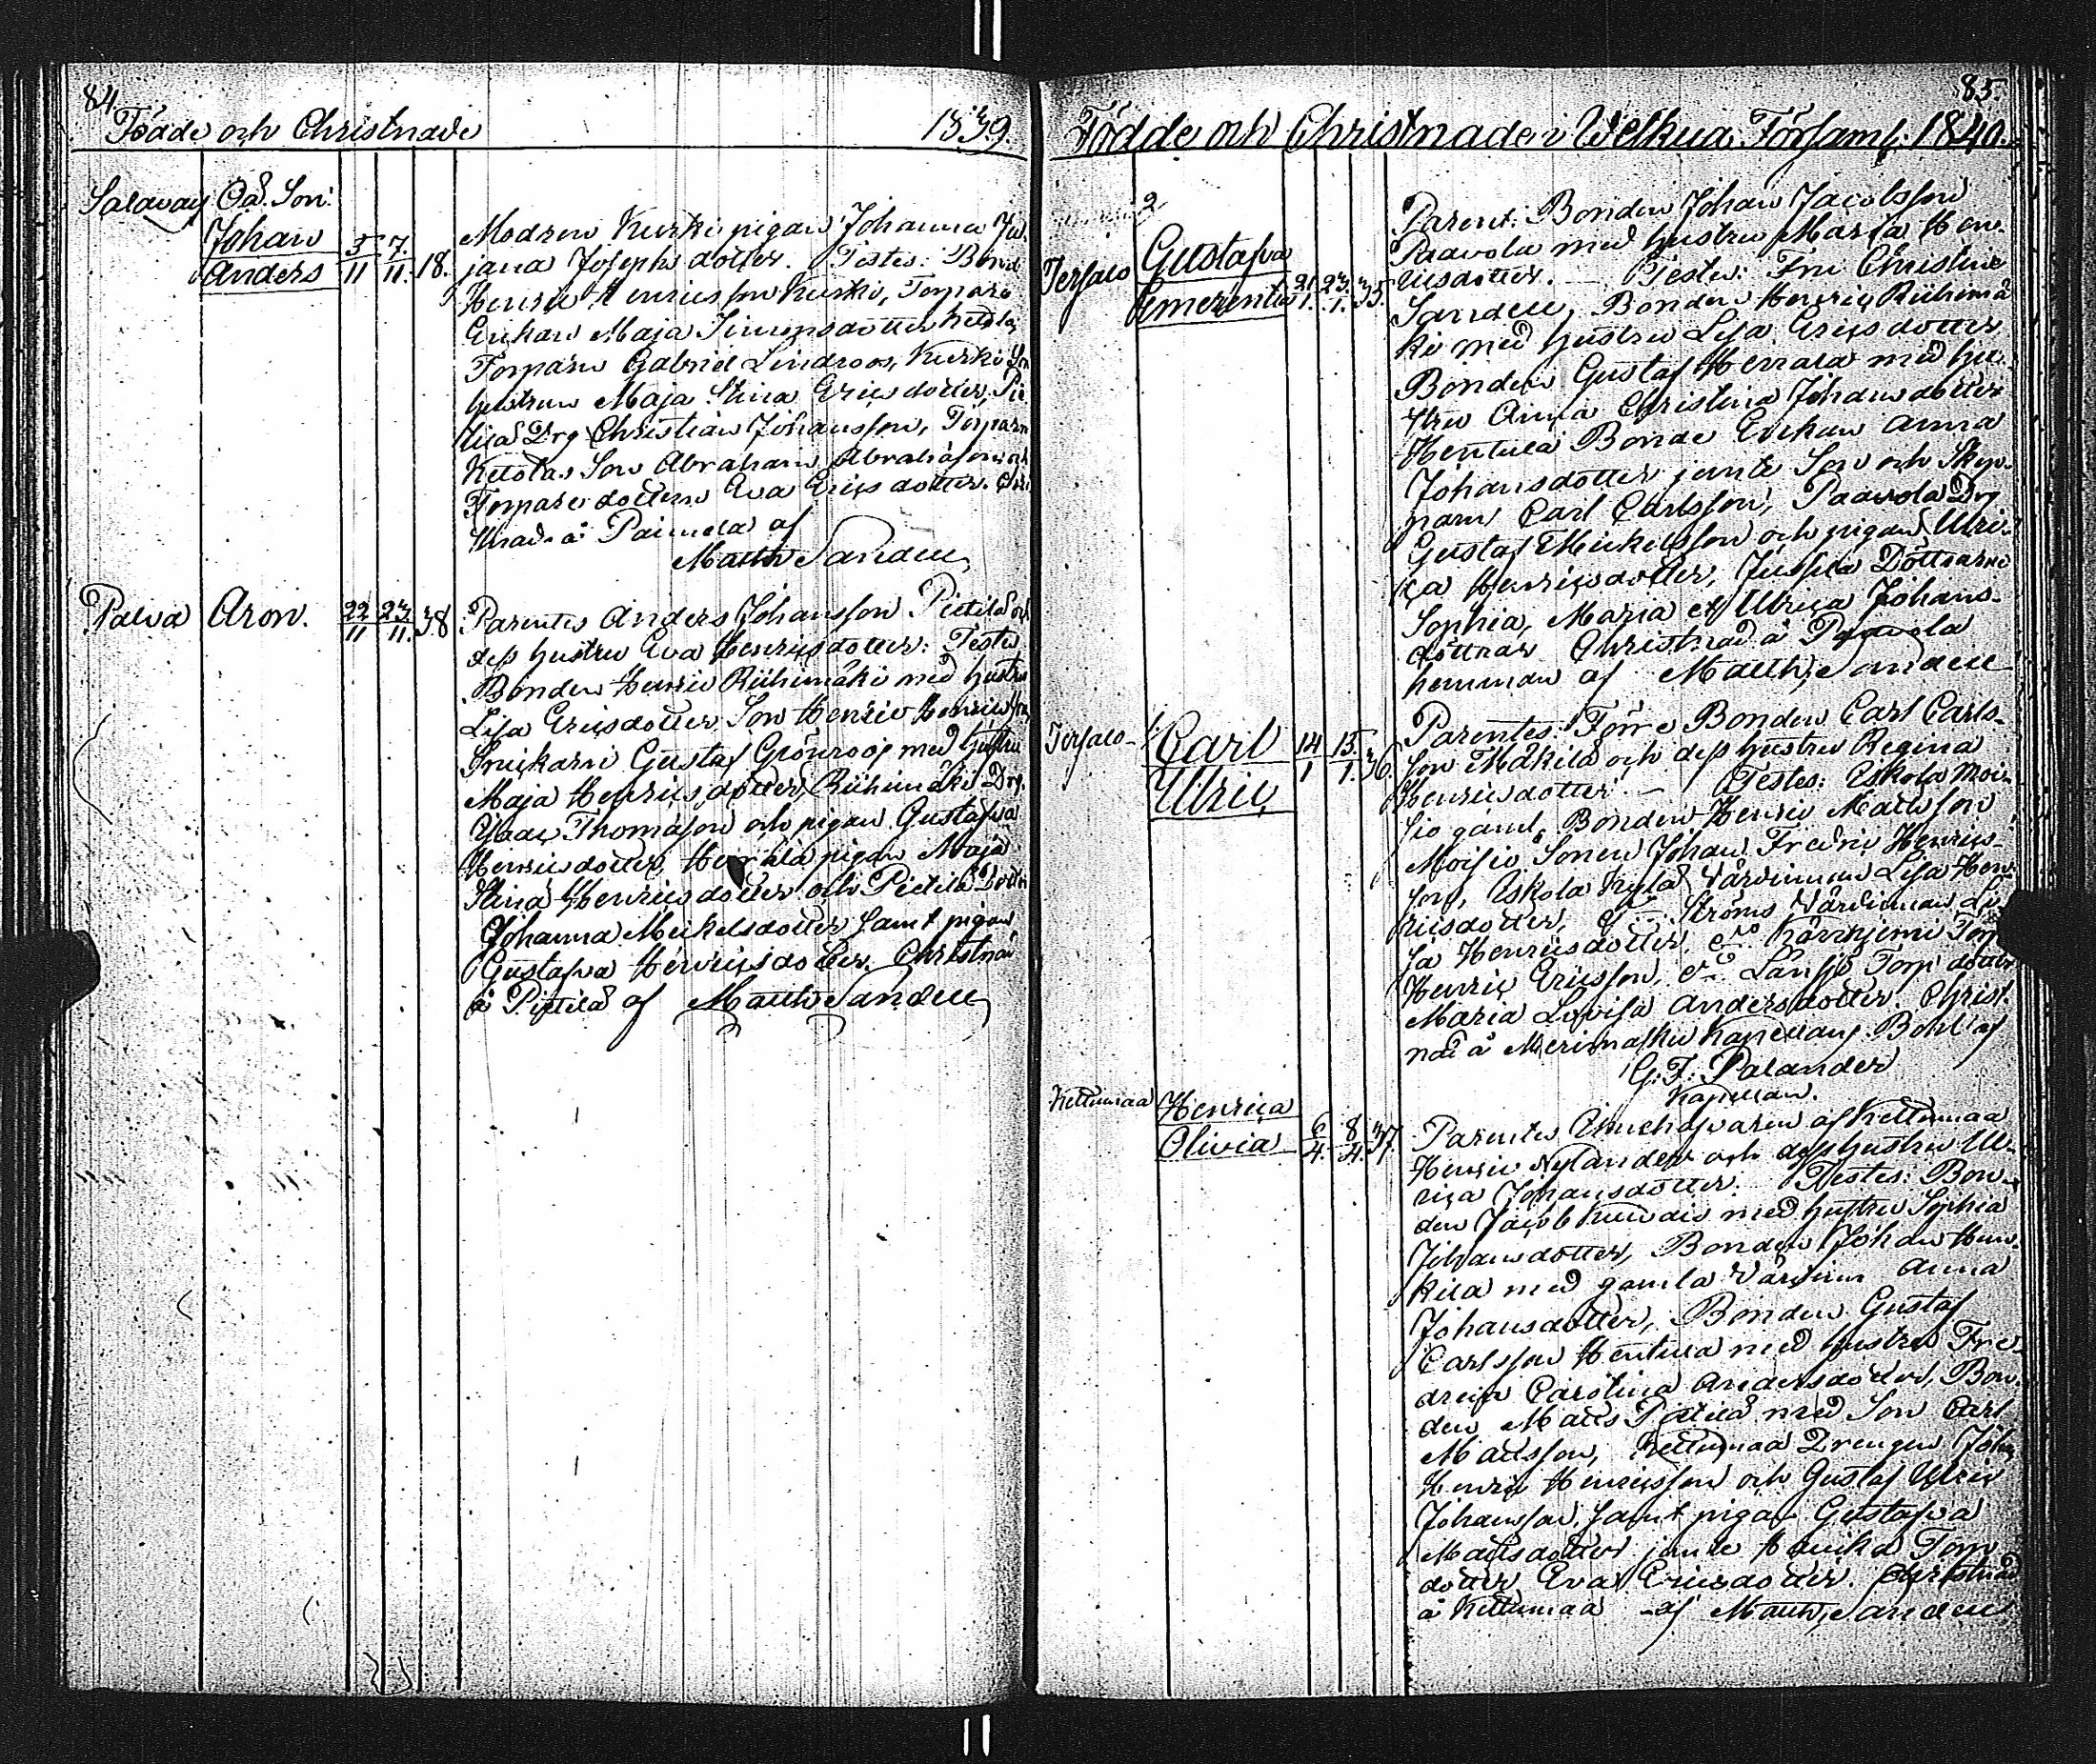 84.
Födde och Christnade 1839.
Salavay Oä. Son:
Johan
Anders 5/11 7./11. 18.
Modren Kurki pigan Johanna Ju-
jana Josephsdotter. Testes: Bond.
Henric Henricsson Kurki, Torpare
Enkan Maja Simonsdotter Ketola,
Torparn Gabriel Lindroos, Kurki
hustrun Maja Stina Ericsdotter, Pie-
tilä Drg Christian Johansson, Torparn
Ketolas Son Abraham Abrahamsson och
Torpare dottern Eva Ericsdotter. Chri-
stnad å Paimela af
Matth. Sandell
Palva Aron. 22/11 23/11. 38
Parentes Anders Johansson Pietilä och
dess hustru Eva Henricsdotter: Testes
Bonden Henric Riihimäki med hustru
Lisa Ericsdotter, Son Henric Henricsson,
Snickarn Gustaf Grönroos med hustru
Maja Henricsdotter, Riihimäki Drg.
Isaac Thomasson och pigan Gustafva
Henricsdotter, pigan Maja
Stina Henricsdotter och Pietilä Dottr
Johanna Mickelsdotter samt pigan
Gustafva Henricsdotter. Christnad
å Pietilä af Matth. Sandell
85.
Födde och Christnade i Welkua Församl: 1840.
2
Tersalo Gustafva
Emerentia 21/1. 23./1. 35.
Parent: Bonden Johan Jacobsson
Paavola med hustru Maria Hen-
ricsdotter. — Testes: Fru Christine
Sandell, Bonden Henric Riihimä
ki med hustru Lisa Ericsdotter
Bonden Gustaf Herrala med hu-
stru Anna Christina Johansdotter
Hentula Bonde Enkan Anna
Johansdotter jemte Son och Skep-
parn Carl Carlsson, Paavola Drg
Gustaf Mickelsson och pigan Ulri-
ca Henricsdotter, Jussila Döttrarne
Sophia, Maria et Ulrica Johans-
döttrar Christnad å Paavola
hemman af Matth. Sandell
Tersalo — Carl
Ulric 14/1 15./1. 36.
Parentes: Förre Bonden Carl Carls-
son Mäkilä och dess hustru Regina
Henricsdotter. — Testes: Uskola Moi-
sio gaml. Bonden Henric Mattsson
Moisio Sonen Johan Fredric Henrics-
son, Uskola Kylä Värdinnan Lisa Hen-
ricsdotter, Ströms Värdinnan Li-
sa Henricsdotter Kärrniemi Torp
Henric Ericsson, Torp dottr
Maria Lovisa Andersdotter. Christ-
nad å Merimasku Kapellans Bohl af
G: F: Palander
Kapellan.
Kettumaa Henrica
Olivia 6/4. 8/4. 37.
Parentes af Kettumaa
Henric Nylander och dess hustru Ul-
rica Johansdotter. Testes: Bon-
den Jacob med hustru Sophia
Johansdotter, Bonden Johan Hun-
kila med gamla Värdinn Anna
Johansdotter, Bonden Gustaf
Carlsson Hentula med hustru Fre-
drica Carolina Andersdotter, Bon-
den Matts Pietilä med Son Carl
Mattsson, Kettumaa Drengen Johan
Henric Henricsson och Gustaf Ulric
Johansson, samt pigan Gustafva
Mattsdotter jemte Torp
dotter Eva Ericsdotter. Christnad
å Kettumaa af Matth. Sandell